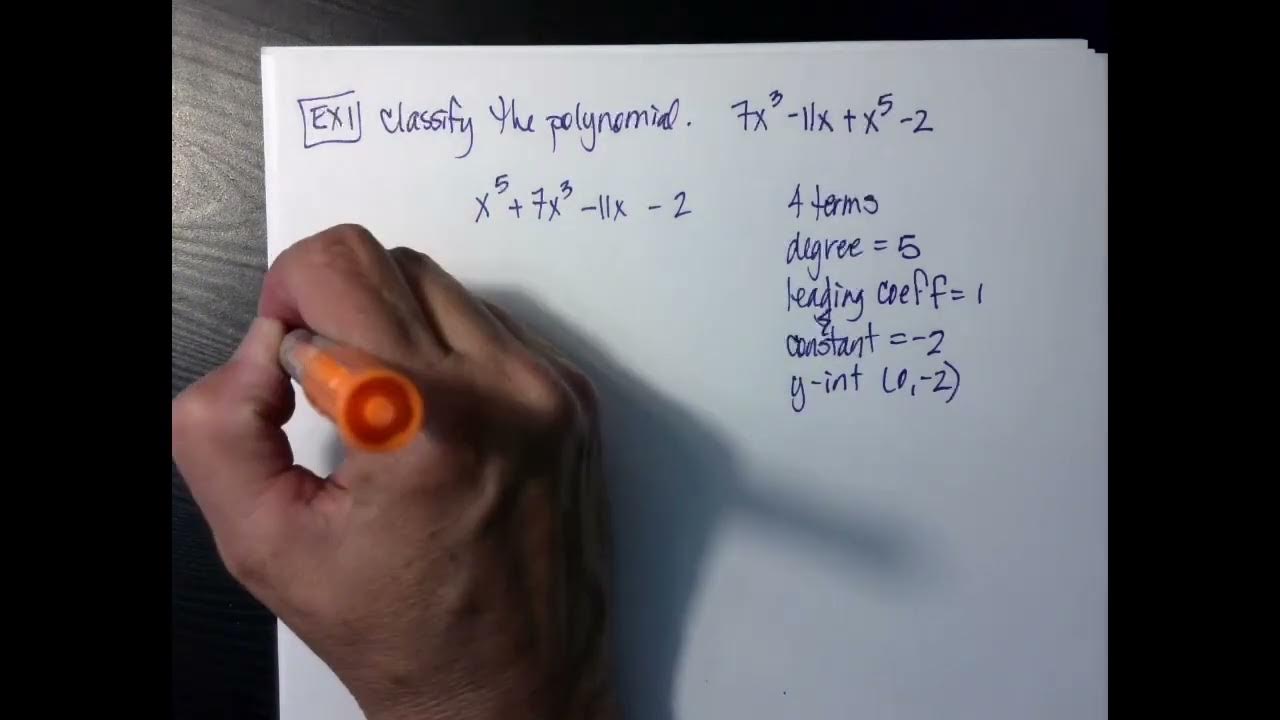 EX1 Classify the polynomial. 7x³ - 11x + x⁵ - 2
x⁵ + 7x³ - 11x - 2
4 terms
degree = 5
leading coeff = 1
constant = -2
y-int (0, -2)